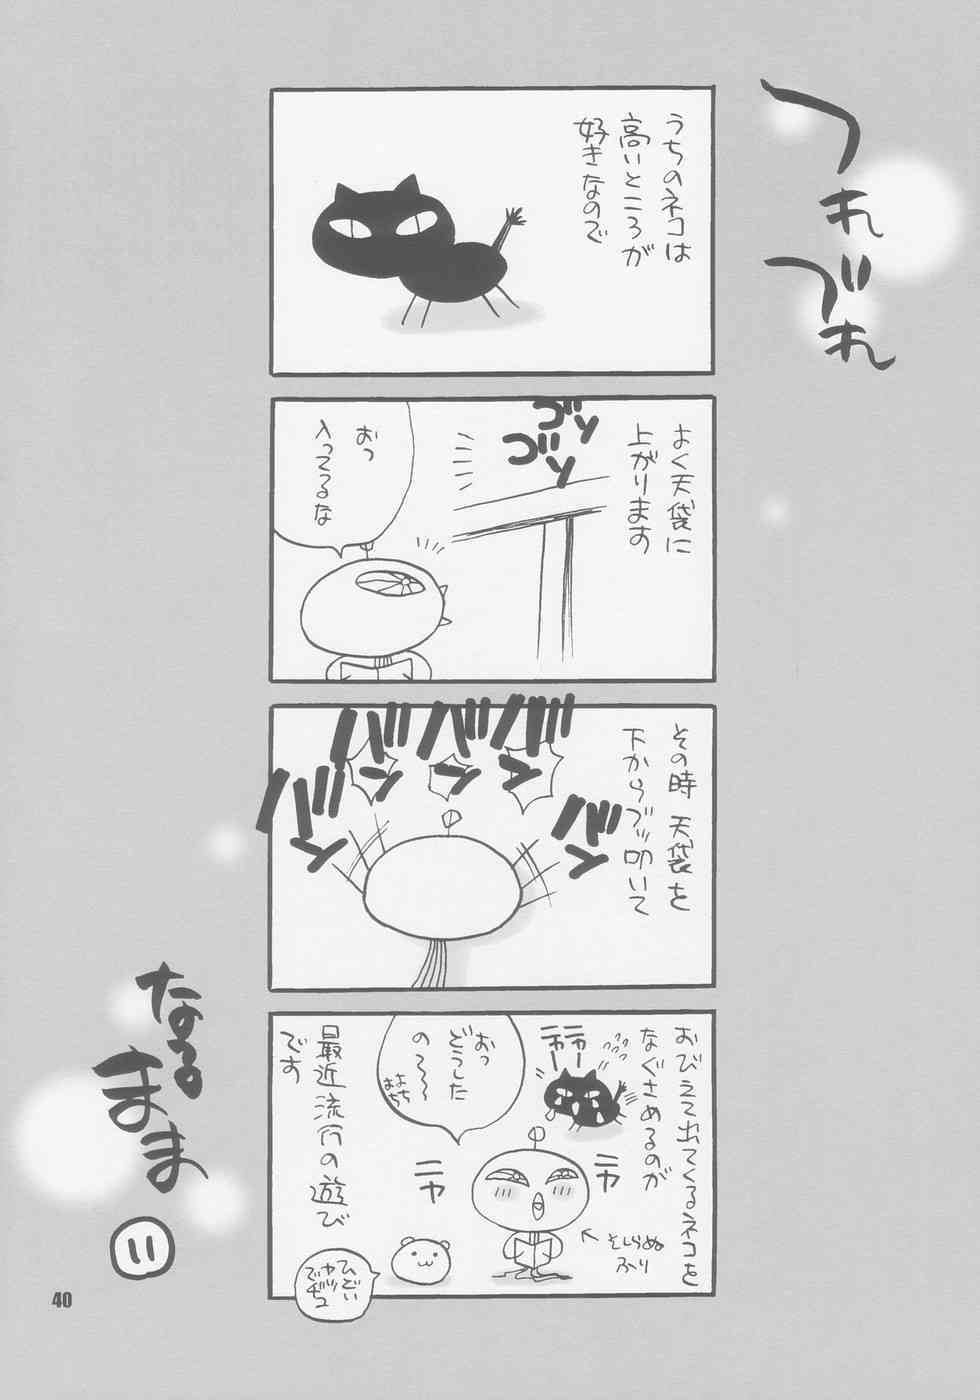 つれづれ
なるまま
11
うちのネコは
高いところが
好きなので
よく天袋に
上がります
ゴソ
ゴソ
おっ
入ってるな
その時 天袋を
下からブッ叩いて
バン
バン
バン
バン
バン
おびえて出てくるネコを
なぐさめるのが
ニャー
ニャー
おっ
どうした
の~~
よちよち
ニヤ
ニヤ
そしらぬ
ふり
最近流行の遊び
です
ひどい
ヤツ
でヂュ
40